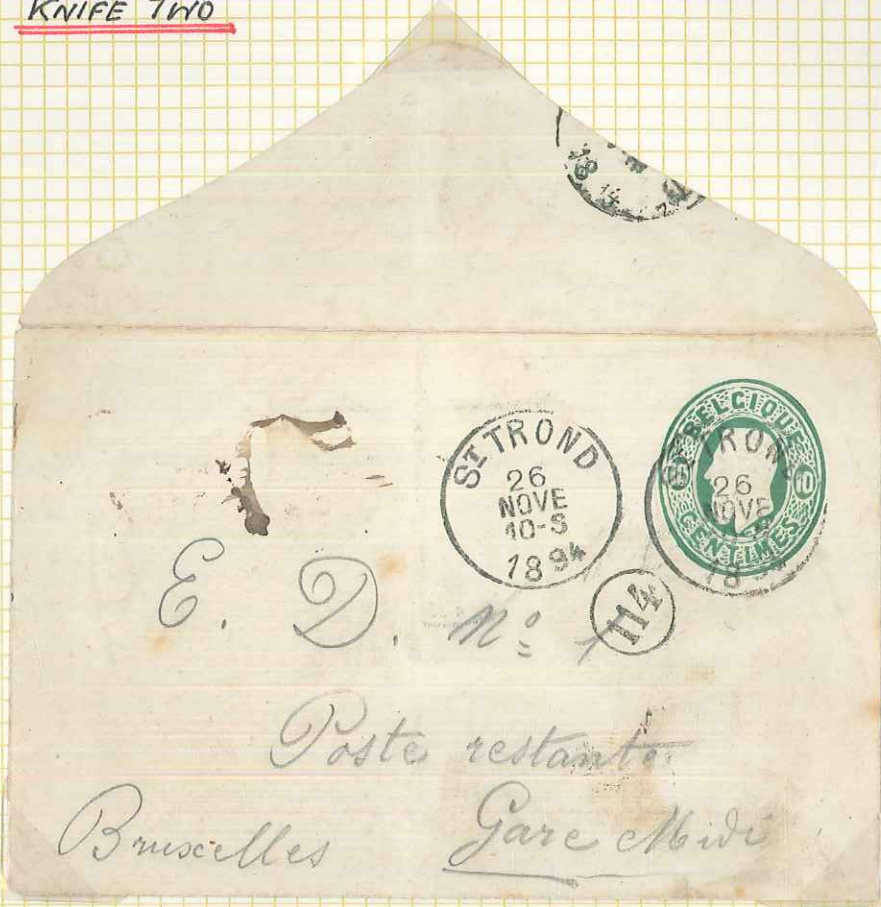 KNIFE TWO
18
ST TROND
26
NOVE
10-S
1894
BELGIQUE
10
CENTIMES
ST TROND
26
NOVE
18
114
E. D. Nº 1
Poste restante
Bruxelles Gare Midi